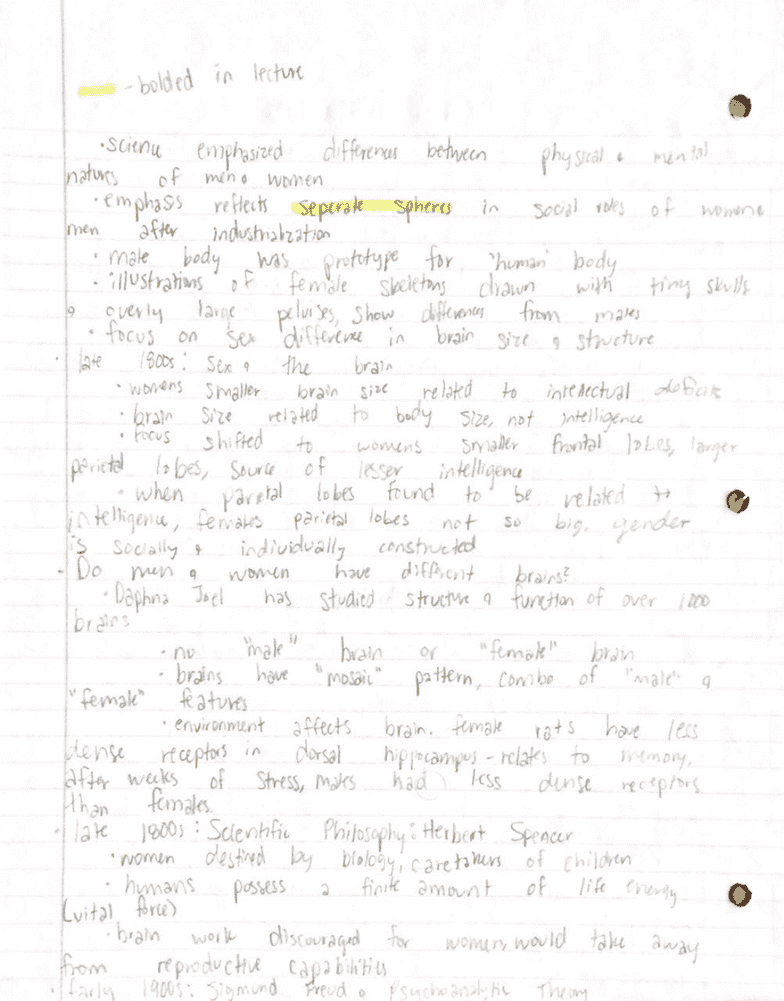 - bolded in lecture
• science emphasized differences between physical & mental
natures of men & women
• emphasis reflects seperate spheres in social roles of women &
men after industrialization
• male body was prototype for "human" body
• illustrations of female skeletons drawn with tiny skulls
& overly large pelvises, show differences from males
• focus on sex difference in brain size & structure
• late 1800s: sex & the brain
• womens smaller brain size related to intellectual deficits
• brain size related to body size, not intelligence
• focus shifted to womens smaller frontal lobes, larger
parietal lobes, source of lesser intelligence
• when parietal lobes found to be related to
intelligence, females parietal lobes not so big, gender
is socially & individually constructed
• Do men & women have different brains?
• Daphna Joel has studied structure & function of over 1000
brains
• no "male" brain or "female" brain
• brains have "mosaic" pattern, combo of "male" &
"female" features
• environment affects brain. female rats have less
dense receptors in dorsal hippocampus - relates to memory,
after weeks of stress, males had less dense receptors
than females.
• late 1800s: Scientific Philosophy: Herbert Spencer
• women destined by biology, caretakers of children
• humans possess a finite amount of life energy
(vital force)
• brain work discouraged for women, would take away
from reproductive capabilities
• Early 1900s: Sigmund Freud & Psychoanalytic Theory